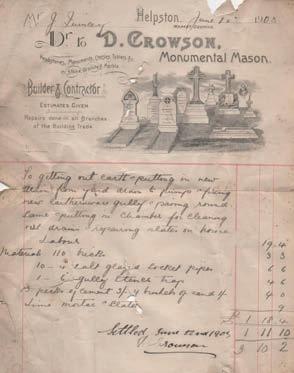 Helpston, June 190
Mr J
Dr to D. CROWSON,
Monumental Mason.
Headstones, Monuments, Crosses, Tablets &c.
in Stone Granite & Marble
Builder & Contractor
ESTIMATES GIVEN
Repairs done in all Branches
of the Building Trade
To getting out earth & putting in new
drain from yard drain to & fixing
new Earthenware gully & paving round
same & putting in Chamber for cleaning
out drain & repairing slates on house
Labour 19 4
Material 110 bricks 3 3
10 - 4 salt glazed socket pipes 6 6
1 - 6 gully & trap 4 6
3 pecks of cement 3/- 4 bushels of sand 4 0
lime mortar & slates 9
£ 1 18 4
1 11 10
3 10 2
Settled June 22nd 1903
Crowson